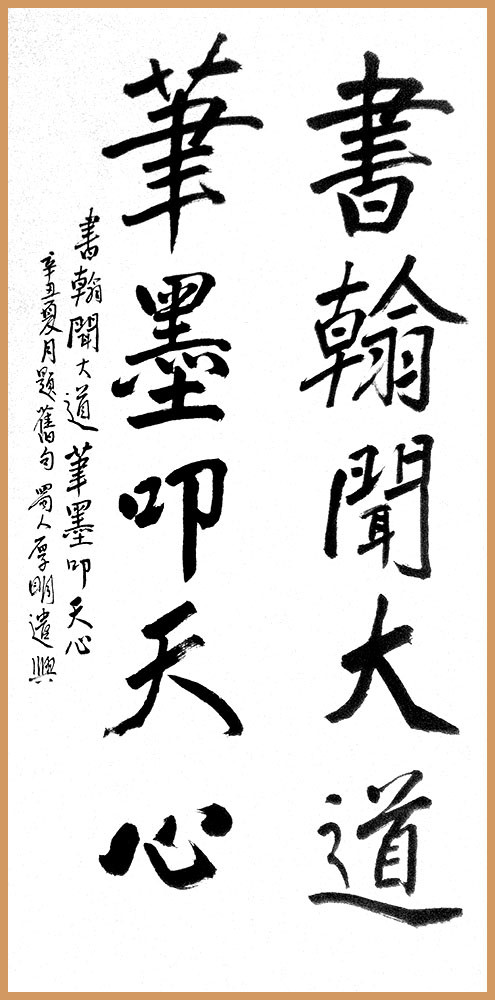 書翰聞大道
筆墨叩天心
書翰聞大道筆墨叩天心
辛丑夏月題舊句蜀人厚明遣興